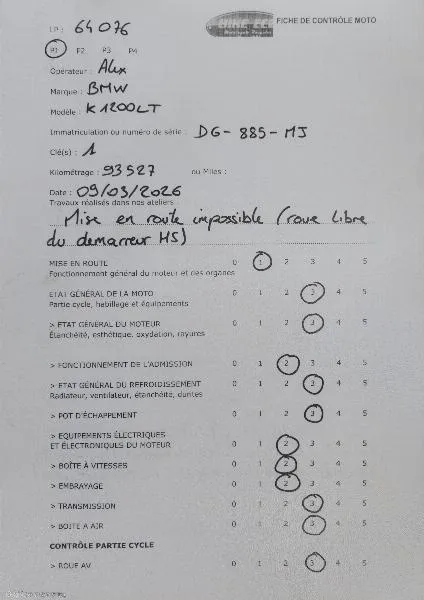 FICHE DE CONTRÔLE MOTO
LP : 64076
P1 P2 P3 P4
Opérateur : Alex
Marque : BMW
Modèle : K1200LT
Immatriculation ou numéro de série : DG-885-MJ
Clé(s) : 1
Kilométrage : 93527 ou Miles :
Date : 09/03/2026
Travaux réalisés dans nos ateliers :
Mise en route impossible (roue libre
du demarreur HS)
MISE EN ROUTE 0 1 2 3 4 5
Fonctionnement général du moteur et des organes
ETAT GÉNÉRAL DE LA MOTO 0 1 2 3 4 5
Partie cycle, habillage et équipements
> ETAT GÉNÉRAL DU MOTEUR 0 1 2 3 4 5
Étanchéité, esthétique, oxydation, rayures
> FONCTIONNEMENT DE L'ADMISSION 0 1 2 3 4 5
> ETAT GÉNÉRAL DU REFROIDISSEMENT 0 1 2 3 4 5
Radiateur, ventilateur, étanchéité, durites
> POT D'ÉCHAPPEMENT 0 1 2 3 4 5
> EQUIPEMENTS ÉLECTRIQUES
ET ÉLECTRONIQUES DU MOTEUR 0 1 2 3 4 5
> BOÎTE À VITESSES 0 1 2 3 4 5
> EMBRAYAGE 0 1 2 3 4 5
> TRANSMISSION 0 1 2 3 4 5
> BOITE A AIR 0 1 2 3 4 5
CONTRÔLE PARTIE CYCLE
> ROUE AV 0 1 2 3 4 5